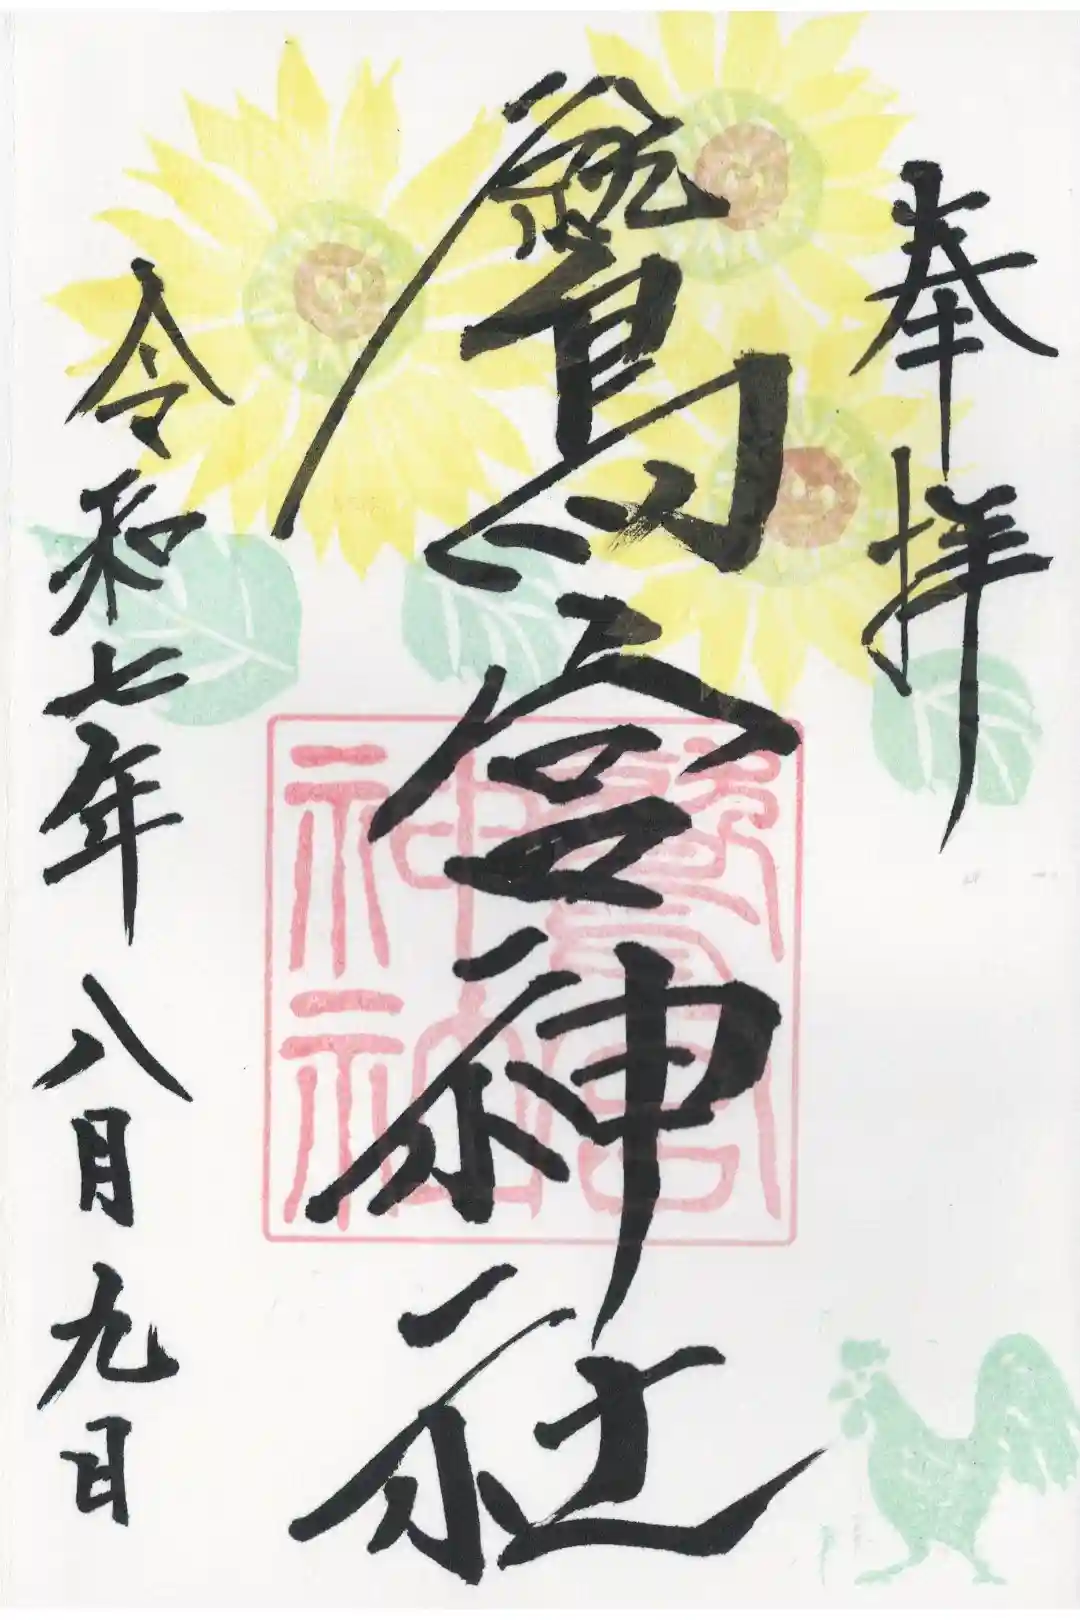 奉拝
鷲宮神社
令和七年八月九日
鷲宮
神社